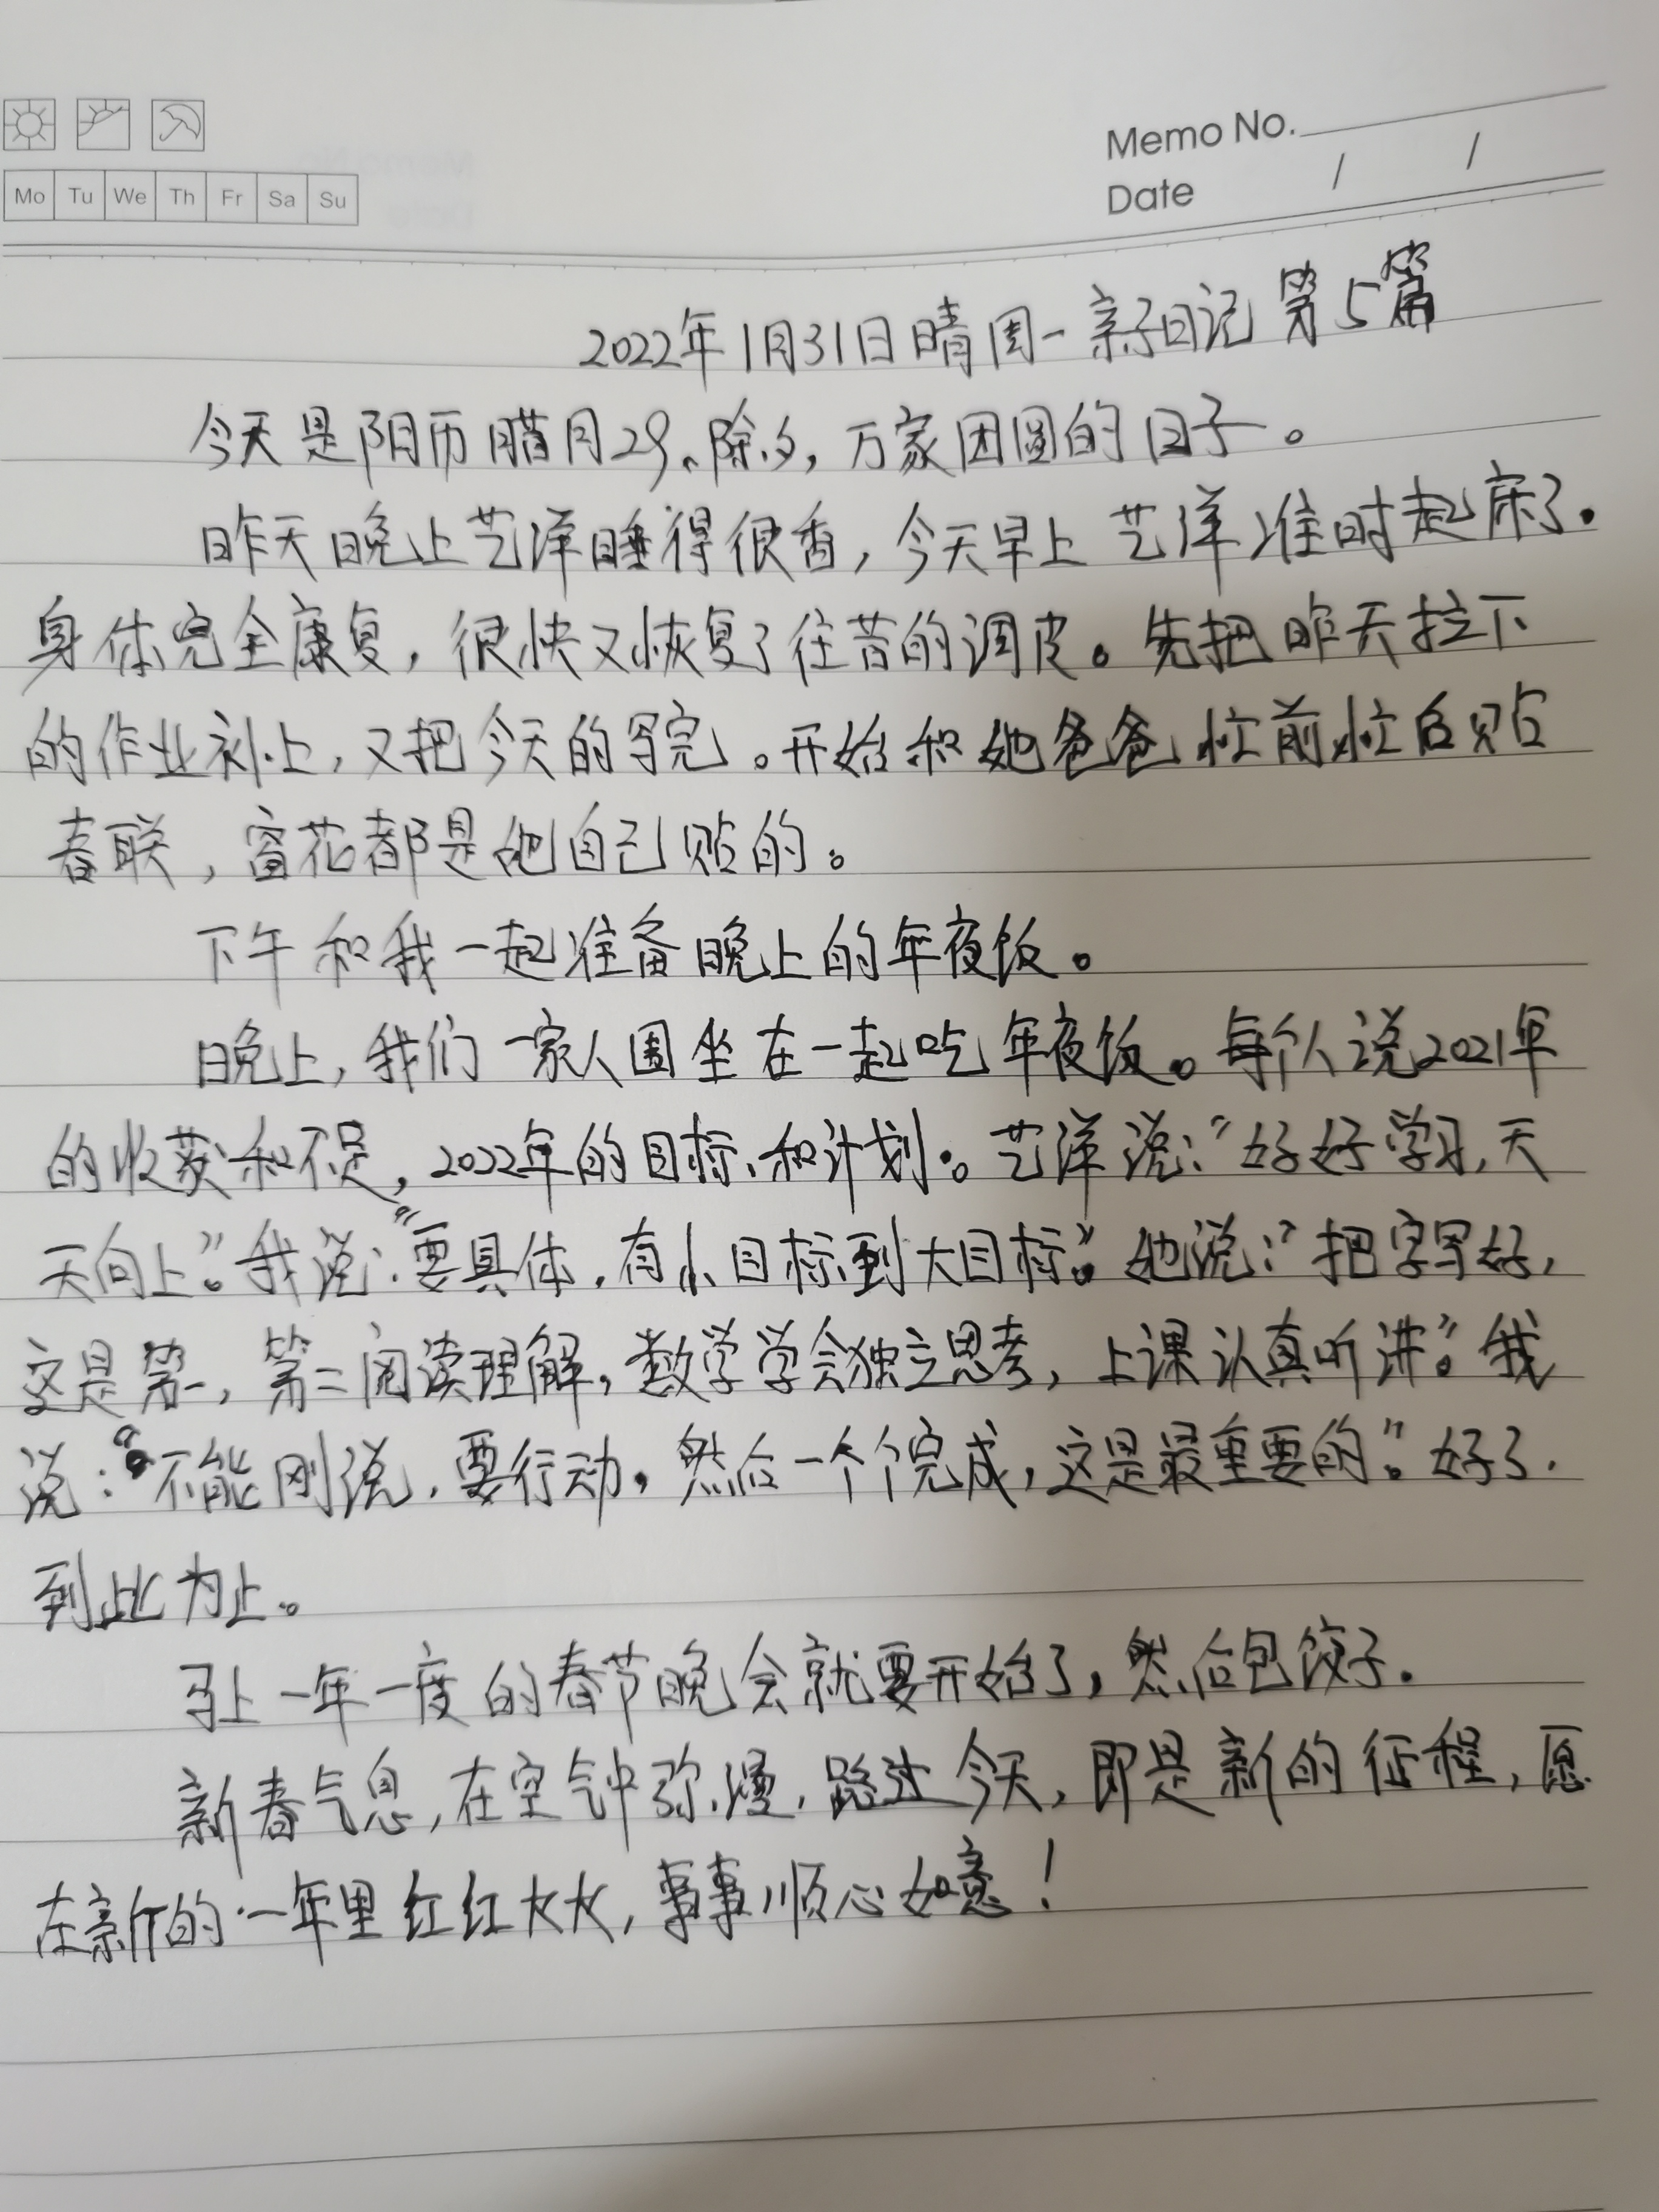 Memo No.
Mo Tu We Th Fr Sa Su
Date / /
2022年1月31日晴周一亲子日记第5篇
今天是阳历腊月29、除夕,万家团圆的日子。
昨天晚上艺洋睡得很香,今天早上艺洋准时起床了.
身体完全康复,很快又恢复了往昔的调皮。先把昨天拉下
的作业补上,又把今天的写完。开始和她爸爸忙前忙后贴
春联,窗花都是她自己贴的。
下午和我一起准备晚上的年夜饭。
晚上,我们一家人围坐在一起吃年夜饭。每个人说2021年
的收获和不足,2022年的目标、和计划。艺洋说:“好好学习,天
天向上”。我说:“要具体,有小目标到大目标”。她说:“把字写好,
这是第一,第二阅读理解,数学学会独立思考,上课认真听讲”。我
说:“不能刚说,要行动,然后一个个完成,这是最重要的”。好了.
到此为止。
马上一年一度的春节晚会就要开始了,然后包饺子.
新春气息,在空气中弥漫,跨过今天,即是新的征程,愿
在新的一年里红红火火,事事顺心如意!